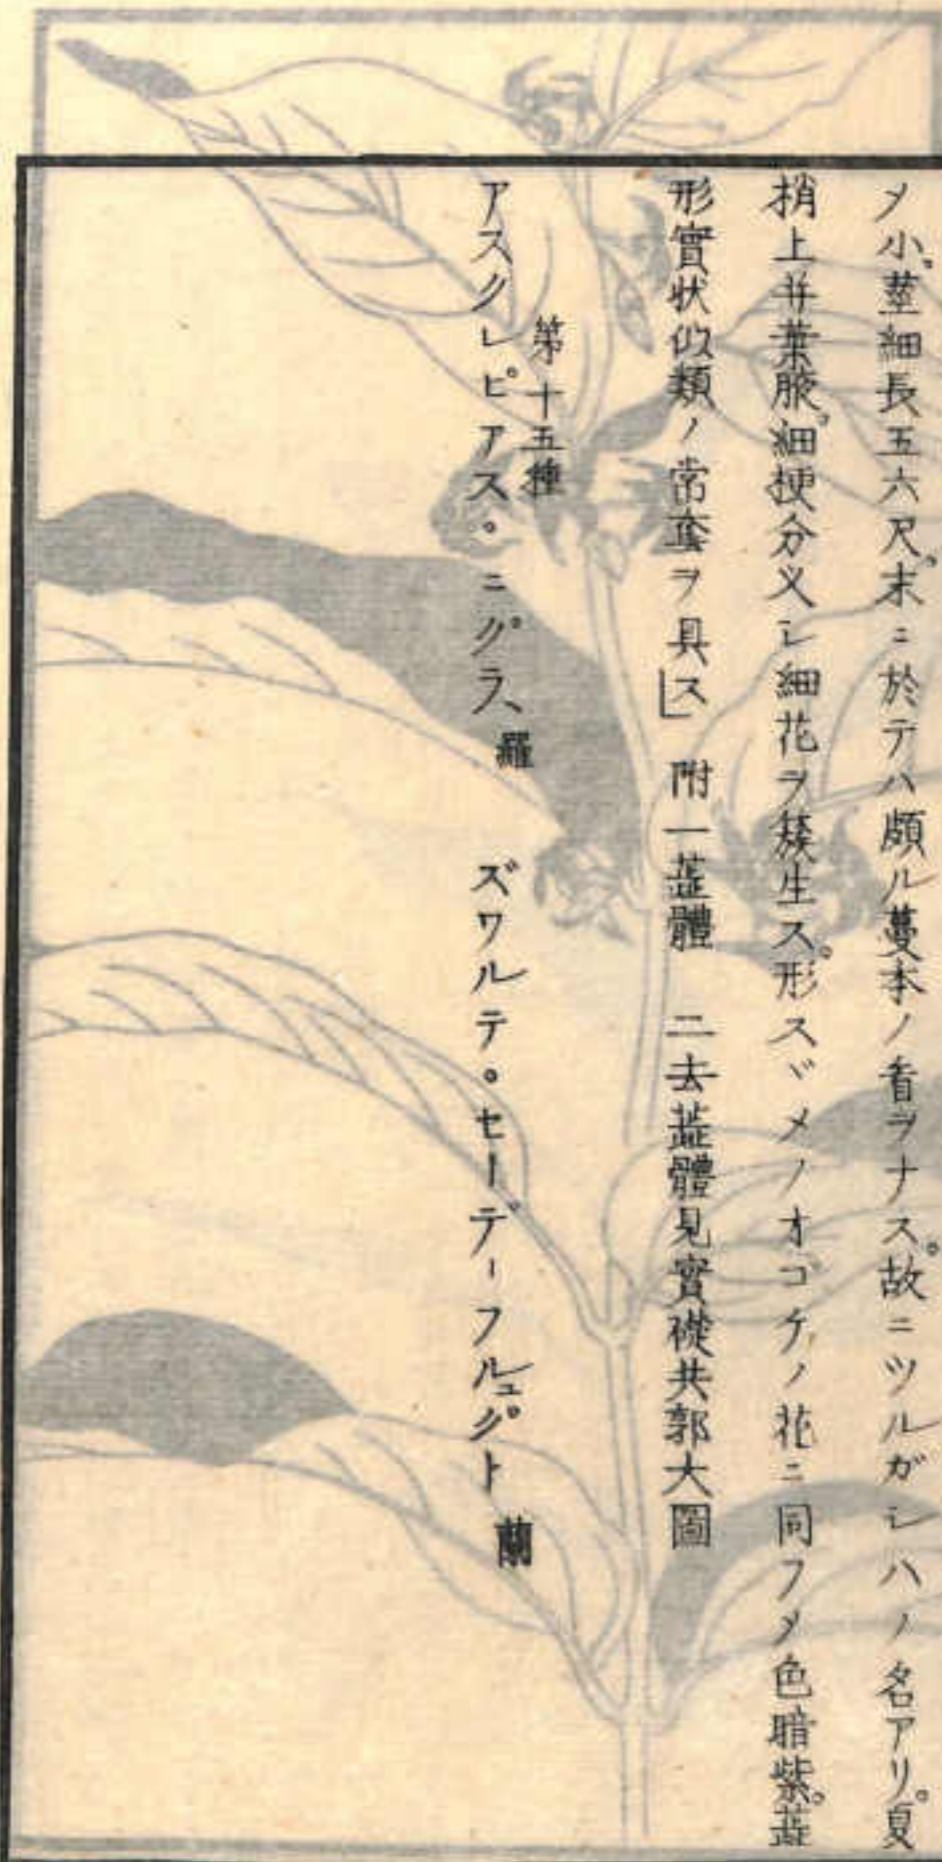 メ小。莖細長五六尺。末ニ於テハ頗ル蔓本ノ看ヲナス。故ニツルガシハノ名アリ。夏
梢上并葉腋。細梗分义シ細花ヲ簇生ス。形スヾメノオゴケノ花ニ同フメ色暗紫。蕋
形實状似類ノ常套ヲ具ス」 附一蕋體 二去蕋體見實礎共郭大圖
第十五種
アスクレピアス。ニグラ、 羅 ズワルテ。セーデーフルュグト 蘭